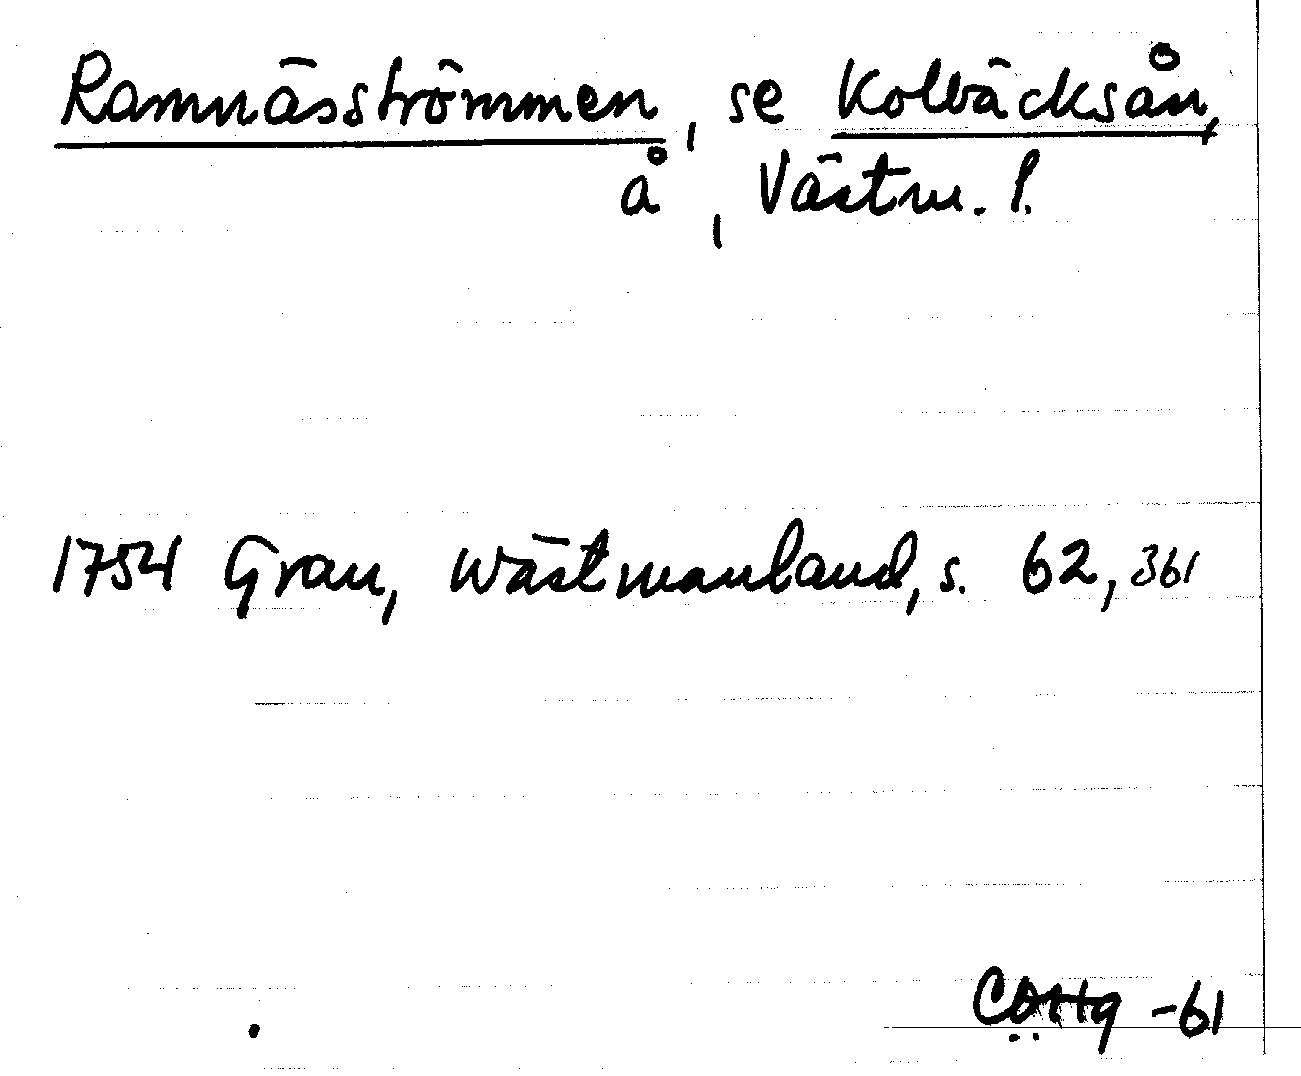 Ramnäsströmmen, se Kolbäcksån,
å, Västm. l.
1754 Grau, Wästmanland, s. 62, 361
-61